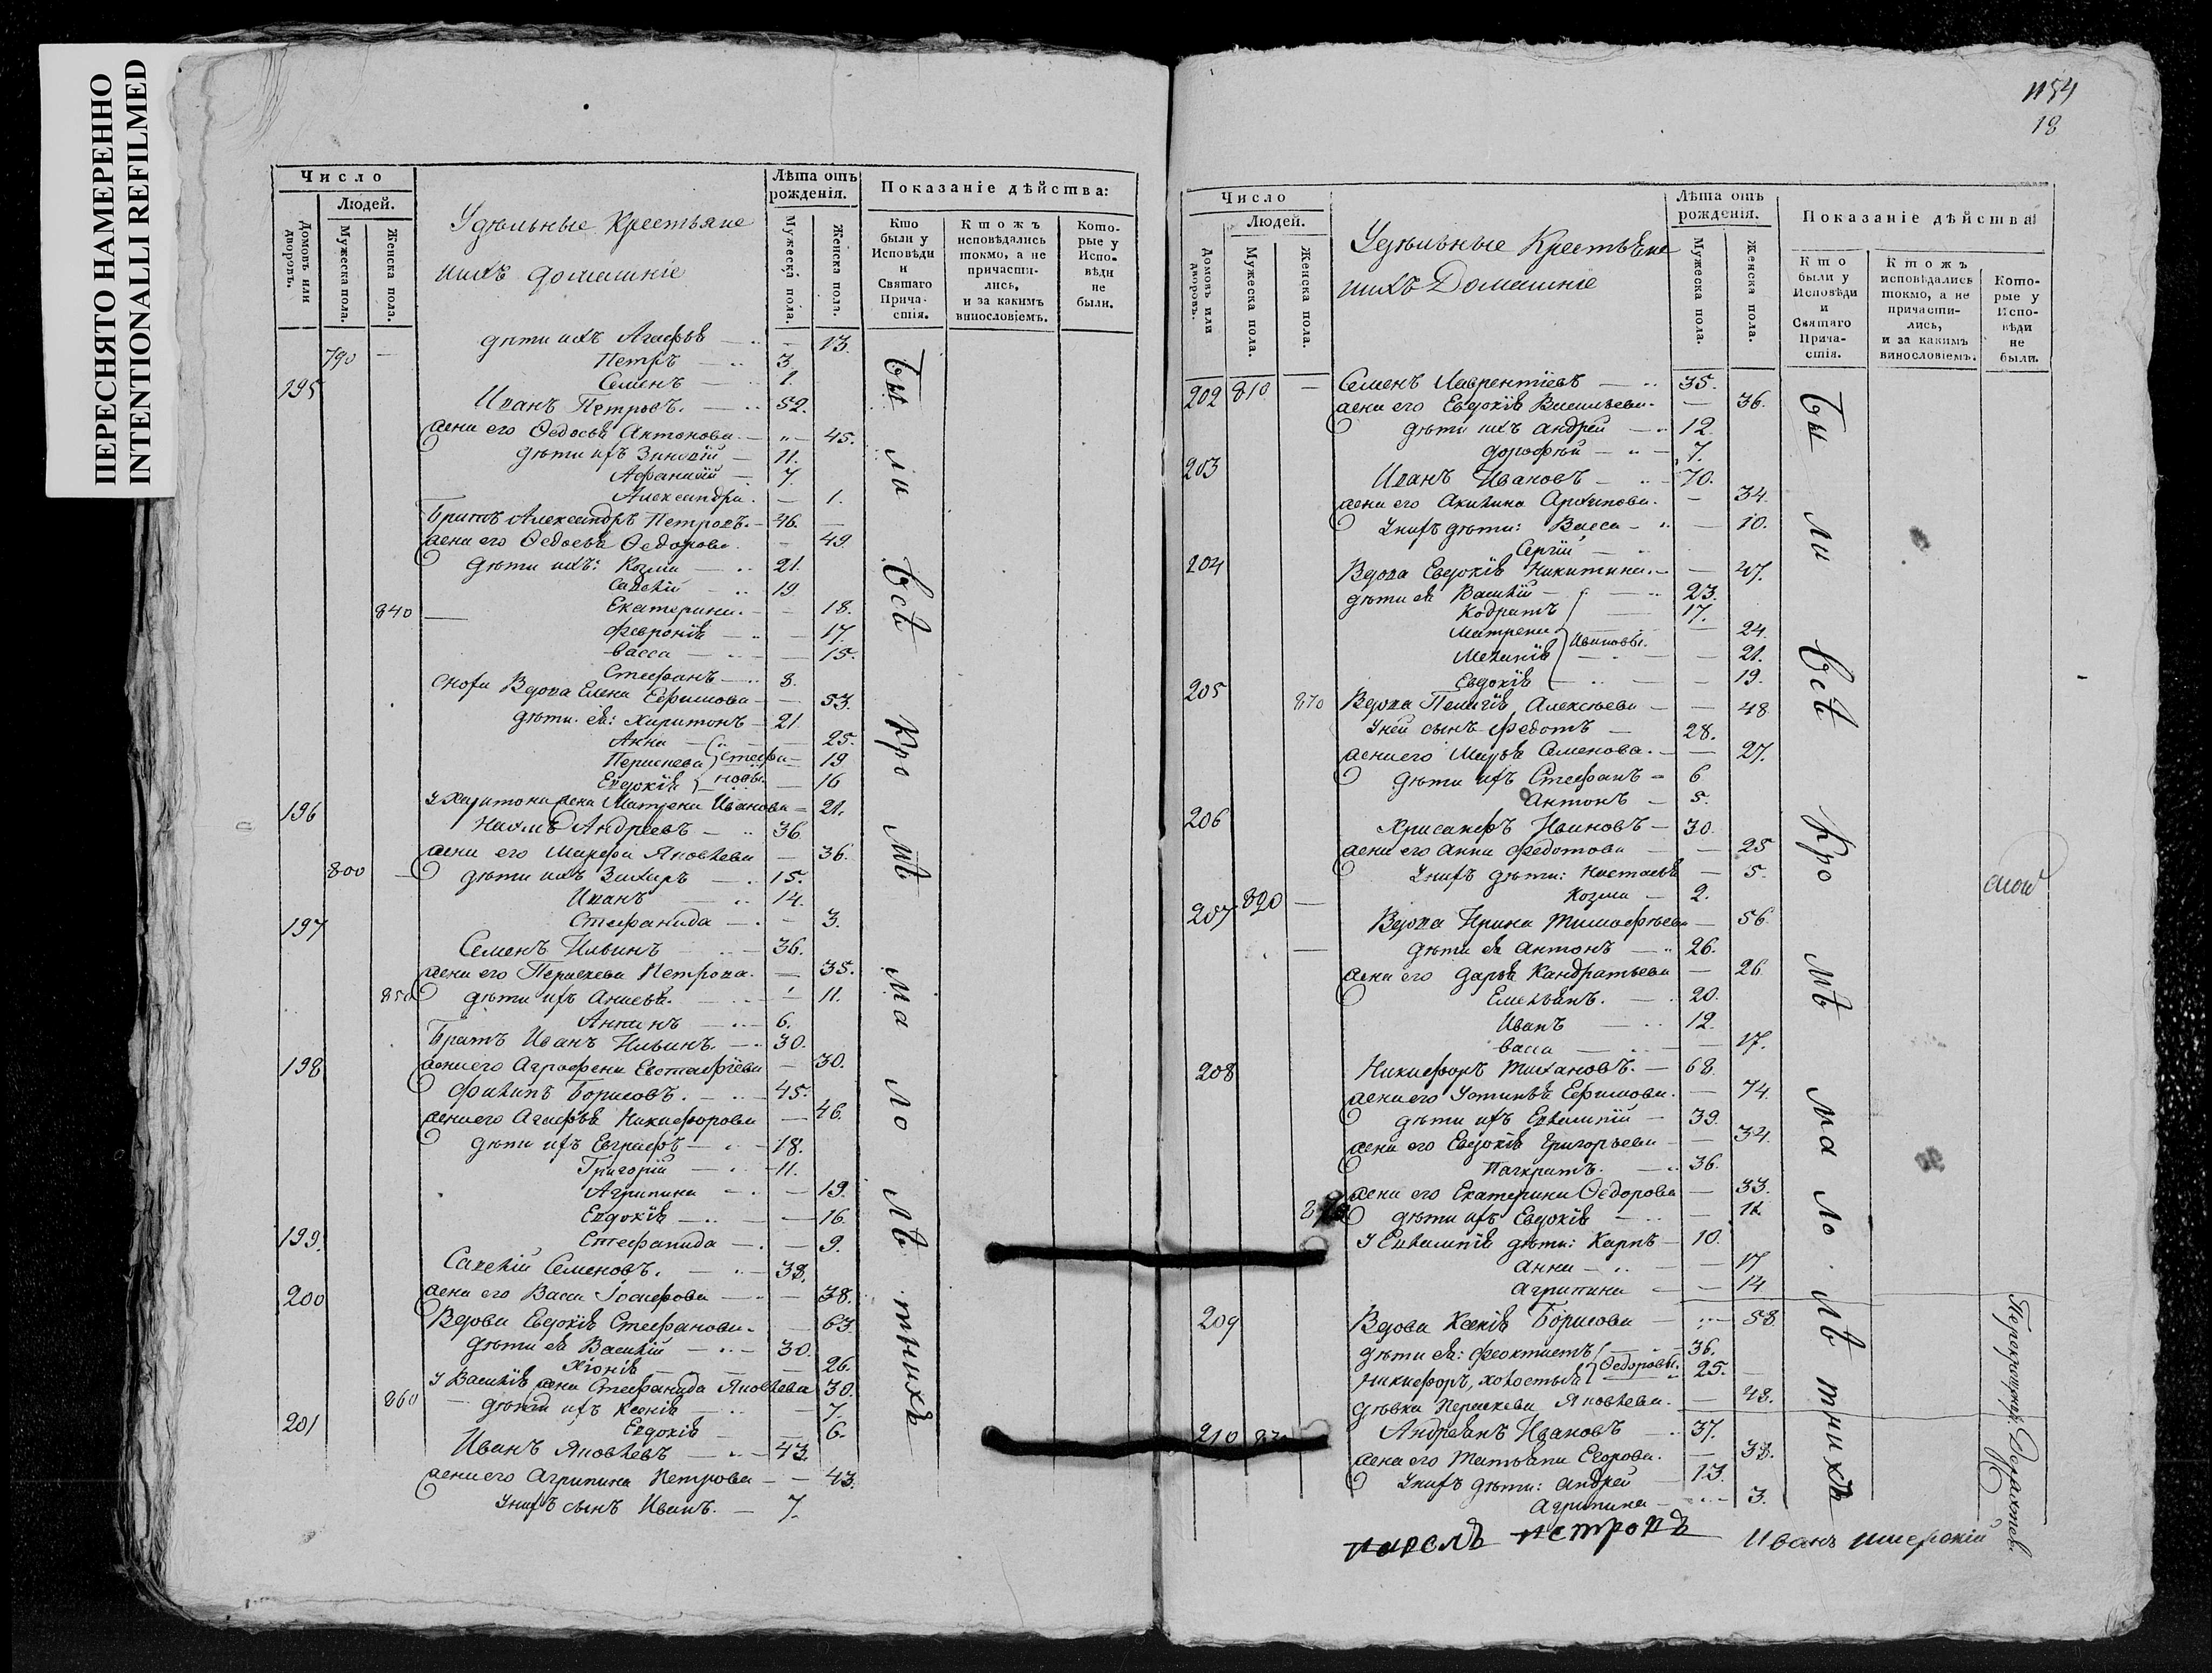 ПЕРЕСНЯТО НАМЕРЕННО
INTENTIONALLI REFILMED
Число
Людей.
Домовъ или дворовъ.
Мужеска пола.
Женска пола.
Удѣльные Крестьяне
ихъ домашніе
Лѣта отъ рожденія.
Мужеска пола.
Женска пола.
Показаніе дѣйства:
Кто были у Исповѣди и Святаго Причастія.
Ктожъ исповѣдались токмо, а не причастились, и за какимъ винословіемъ.
Которые у Исповѣди не были.
дѣти ихъ Агафья — 13.
790 — Петръ — 3
Семенъ — 1.
195 Иванъ Петровъ. — 52.
жена его Ѳедосья Антонова — 45.
дѣти ихъ Зиновій — 11.
Афанасій — 7.
Александра. — 1.
Братъ Александръ Петровъ. — 46.
жена его Ѳедосья Ѳедорова. — 49
дѣти ихъ: Козма — 21.
Савелій — 19
840 — Екатерина. — 18.
Февронія — 17.
Васса — 15.
Стефанъ — 8.
сноха Вдова Елена Ефимова — 53.
дѣти ея: Харитонъ — 21
Анна — 25.
Параскева Стефановы — 19
Евдокія — 16
У Харитона жена Матрена Иванова — 21.
196 Наумъ Андреевъ — 36
жена его Марфа Яковлева — 36.
800 — дѣти ихъ Захаръ — 15.
Иванъ — 14.
Стефанида — 3.
197 Семенъ Ильинъ — 36.
жена его Параскева Петрова. — 35.
850 дѣти ихъ Анисья. — 11.
Ананъ — 6.
Братъ Иванъ Ильинъ. — 30.
жена его Аграфена Евстафіева — 30.
198 Филипъ Борисовъ. — 45.
жена его Агафья Никифорова — 46.
дѣти ихъ Евграфъ — 18.
Григорій — 11.
Агрипина — 19.
Евдокія — 16
Стефанида — 9.
199. Савелій Семеновъ. — 38.
жена его Васса Іосифова — 38.
200 Вдова Евдокія Стефанова. — 63
дѣти ея Василій — 30.
Хіонія — 26.
У Василія жена Стефанида Яковлева 30.
860 — дѣти ихъ Ксенія — 7.
Евдокія — 6.
201 Иванъ Яковлевъ — 43.
жена его Агрипина Петрова — 43.
У нихъ сынъ Иванъ. — 7.
Были всѣ кромѣ малолѣтныхъ
1154
18
Число
Людей.
Домовъ или дворовъ.
Мужеска пола.
Женска пола.
Удѣльные Крестьяне
ихъ Домашніе
Лѣта отъ рожденія.
Мужеска пола.
Женска пола.
Показаніе дѣйства
Кто были у Исповѣди и Святаго Причастія.
Ктожъ исповѣдались токмо, а не причастились, и за какимъ винословіемъ.
Которые у Исповѣди не были.
202 810 — Семенъ Лаврентіевъ — 35.
жена его Евдокія Васильева. — 36.
дѣти ихъ Андрей — 12.
Дорофѣй — 7.
203 Иванъ Ивановъ — 70.
жена его Акилина Архипова. — 34.
У нихъ дѣти: Васса — 10.
Сергій —
204 Вдова Евдокія Никитина. — 47.
дѣти ея Василій — 23.
Кодратъ — 17.
Матрена Ивановы. — 24.
Меланія — 21.
Евдокія — 19.
205 870 Вдова Пелагія Алексѣева — 48
У ней сынъ Федотъ — 28.
жена его Марья Семенова. — 27.
дѣти ихъ Стефанъ — 6
Антонъ — 5.
206 Хрисанфъ Ивановъ — 30.
жена его Анна Федотова — 25
У нихъ дѣти: Настасья — 5.
820 — Козма — 2.
207 Вдова Ирина Тимофѣева — 56
дѣти ея Антонъ — 26.
жена его Дарья Кандратьева — 26
Емельянъ. — 20.
Иванъ — 12.
Васса — 17.
208 Никифоръ Тихановъ. — 68
жена его Устинья Ефимова. — 74.
дѣти ихъ Евлампій — 39.
жена его Евдокія Григорьева — 34.
Панкратъ. — 36.
жена его Екатерина Ѳедорова — 33.
дѣти ихъ Евдокія — 12
У Евлампія дѣти: Карпъ — 10.
Анна — 17
Агрипина — 14
209 Вдова Ксенія Борисова — 58
дѣти ея: Феоктистъ — 36.
Никифоръ, холостыя Ѳедоровы. 25.
дѣвка Параскева Яковлева. — 48.
210 Андреянъ Ивановъ — 37.
жена его Татьяна Егорова. — 38.
У нихъ дѣти: Андрей — 13.
Агрипина — 3.
Были всѣ кромѣ малолѣтныхъ
Иванъ